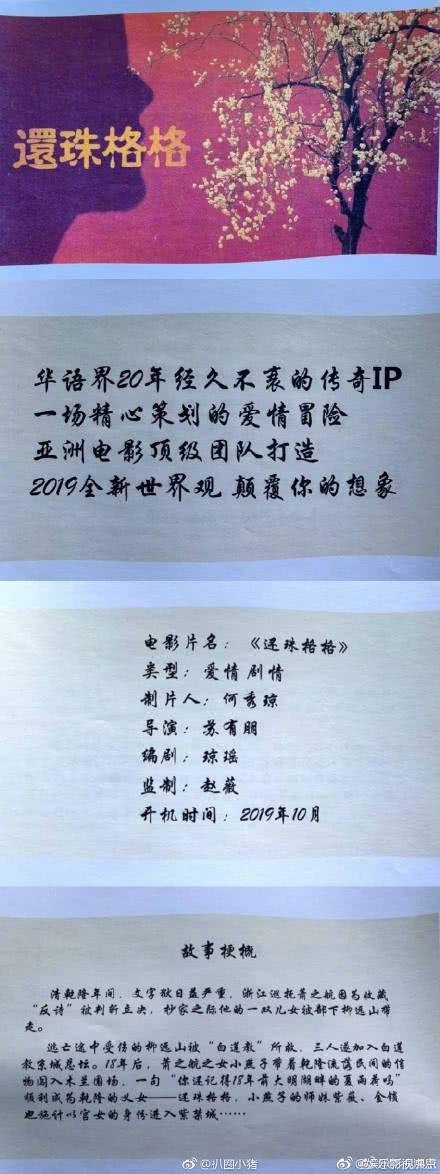 還珠格格
华语界20年经久不衰的传奇IP
一场精心策划的爱情冒险
亚洲电影顶级团队打造
2019全新世界观 颠覆你的想象
电影片名：《还珠格格》
类型：爱情剧情
制片人：何秀琼
导演：苏有朋
编剧：琼瑶
监制：赵薇
开机时间：2019年10月
故事梗概
清乾隆年间，文字狱日益严重，浙江巡抚萧之航因为收藏
“反诗”被判斩立决，抄家之际他的一双儿女被部下柳远山带
走。
逃亡途中受伤的柳远山被“白道教”所救，三人遂加入白道
教京城总坛。18年后，萧之航之女小燕子带着乾隆流落民间的信
物闯入木兰围场，一句“你还记得18年前大明湖畔的夏雨荷吗”
顺利成为乾隆的义女——还珠格格，小燕子的师妹紫薇、金锁
也施计以宫女的身份进入紫禁城……
@扒图小猪